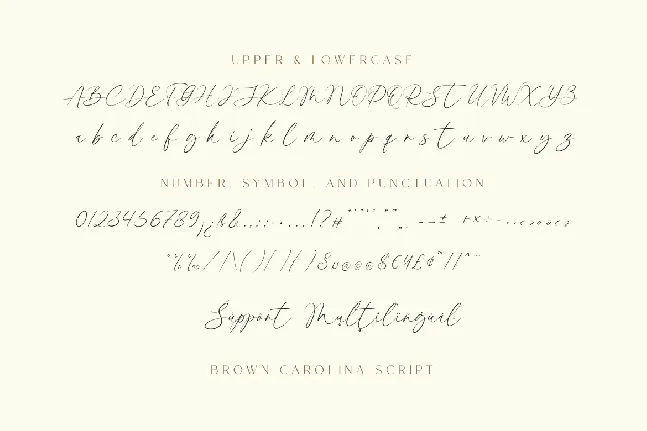 UPPER & LOWERCASE
ABCDEFGHIJKLMNOPQRSTUVWXYZ
abcdefghijklmnopqrstuvwxyz
NUMBER, SYMBOL, AND PUNCTUATION
0123456789¿¡ß&.,:;...!?#
Support Multilingual
BROWN CAROLINA SCRIPT